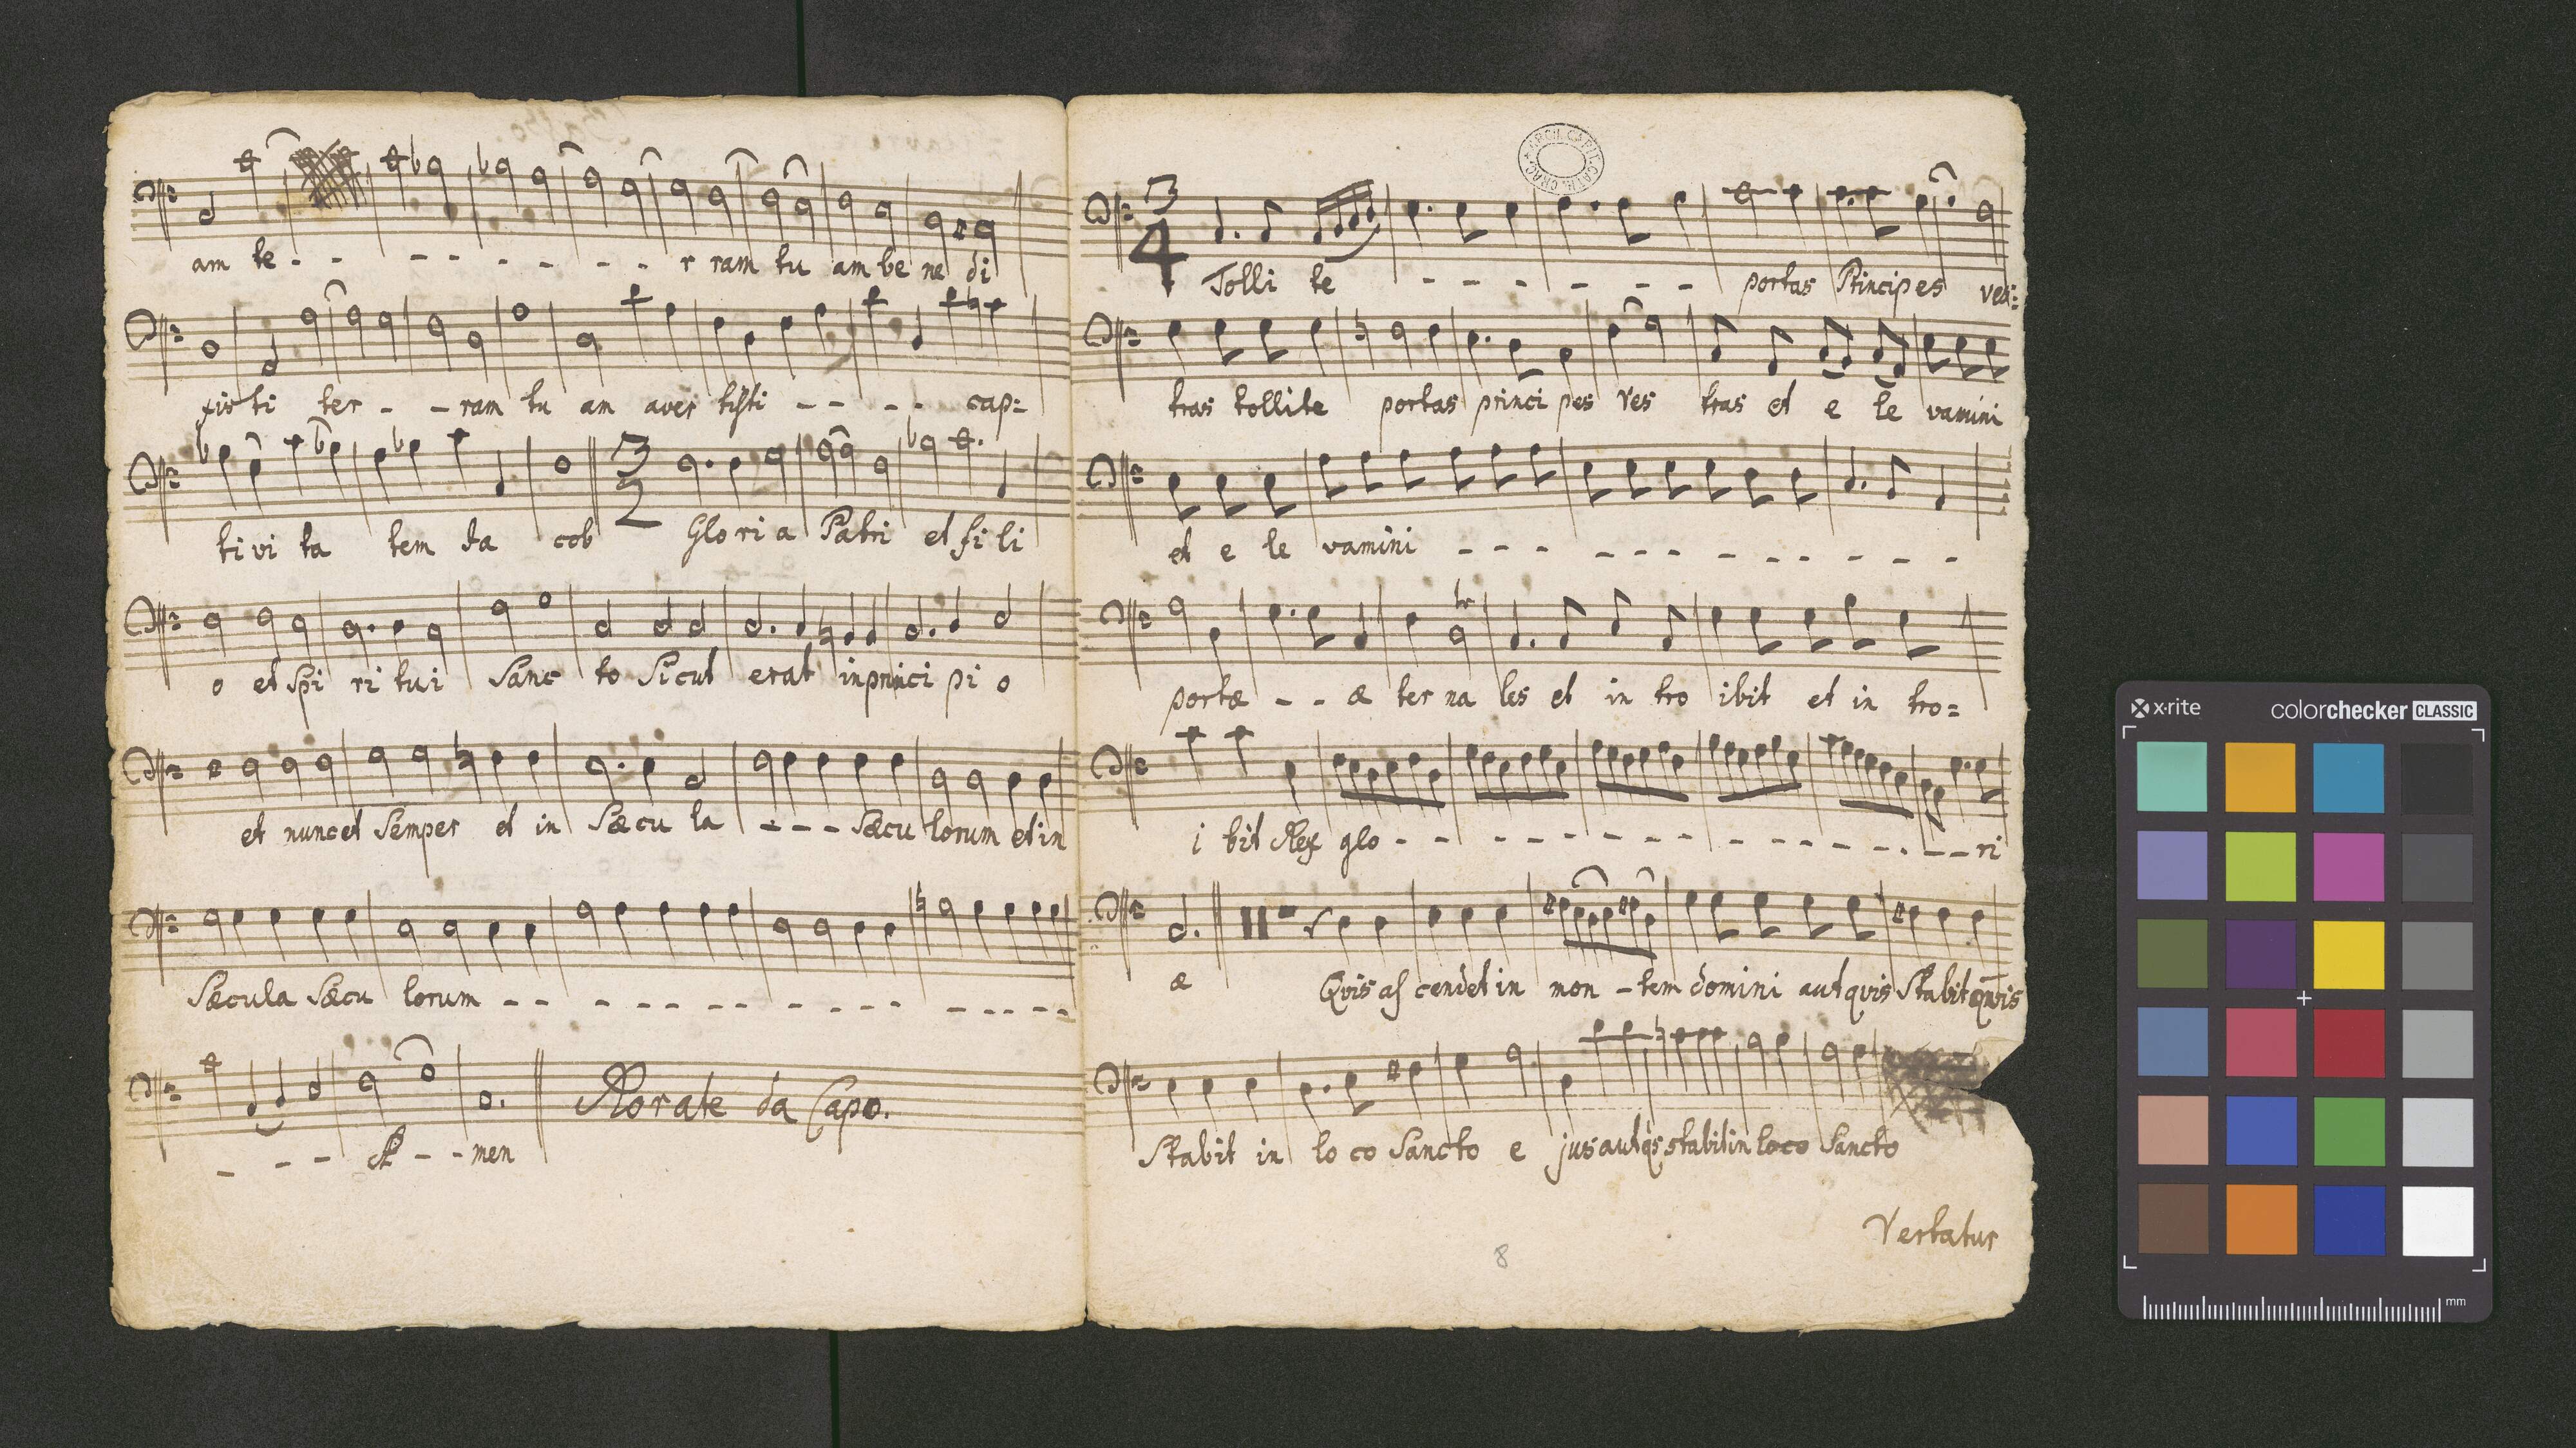 am te - - - - - - - - - r ram tu am be ne di
xis ti ter - - ram tu am aver tisti - - - - cap=
ti vi ta tem Ja cob 3 2 Glo ri a Patri et fi li
o et Spi ri tui Sanc to Sicut erat in princi pi o
et nunc et Semper et in Sæcu la - - - Sæcu lorum et in
Sæcula Sæcu lorum - - - - - - - - - - - - - -
- - - A - - men Rorate da Capo.
ARCH. CAPIT. CATH. CRAC.
3 4 Tolli te - - - - - - portas Principes ves=
tras tollite portas princi pes Ves tras et e le vamini
et e le vamini - - - - - - - - - - - -
tr
portæ - - æ ter na les et in tro ibit et in tro=
i bit Rex glo - - - - - - - - - - - - - - ri
æ Qvis as cendet in mon - tem domini aut qvis Stabit qvis
Stabit in lo co Sancto e jus aut qs stabit in loco Sancto
Vertatur
8
x·rite colorchecker CLASSIC
mm